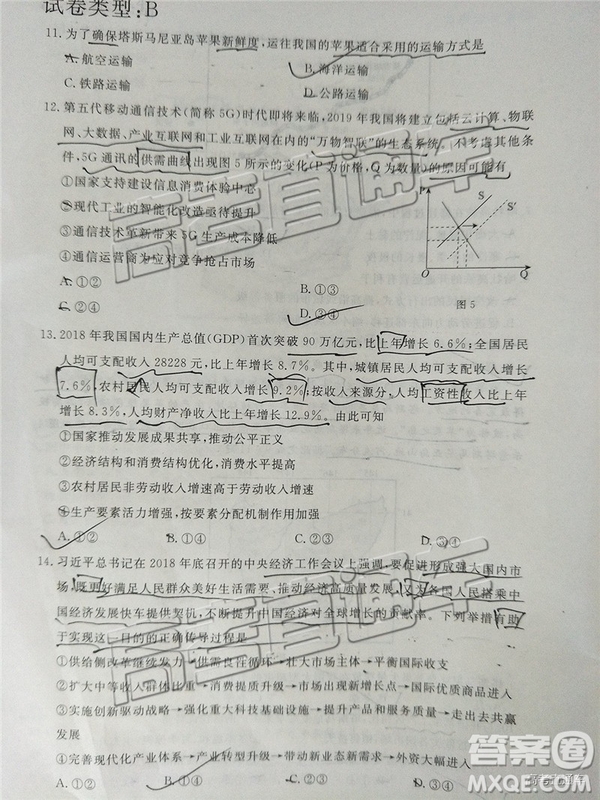 试卷类型:B
11.为了确保塔斯马尼亚岛苹果新鲜度,运往我国的苹果适合采用的运输方式是
A.航空运输 B.海洋运输
C.铁路运输 D.公路运输
12.第五代移动通信技术(简称5G)时代即将来临,2019年我国将建立包括云计算、物联
网、大数据、产业互联网和工业互联网在内的“万物智联”的生态系统。不考虑其他条
件,5G通讯的供需曲线出现图5所示的变化(P为价格,Q为数量)的原因可能有
①国家支持建设信息消费体验中心
②现代工业的智能化改造亟待提升
③通信技术革新带来5G生产成本降低
④通信运营商为应对竞争抢占市场
A.①② B.①③
C.②④ D.③④
P
S
S′
O
Q
图5
13.2018年我国国内生产总值(GDP)首次突破90万亿元,比上年增长6.6%;全国居民
人均可支配收入28228元,比上年增长8.7%。其中,城镇居民人均可支配收入增长
7.6%,农村居民人均可支配收入增长9.2%;按收入来源分,人均工资性收入比上年
增长8.3%,人均财产净收入比上年增长12.9%。由此可知
①国家推动发展成果共享,推动公平正义
②经济结构和消费结构优化,消费水平提高
③农村居民非劳动收入增速高于劳动收入增速
④生产要素活力增强,按要素分配机制作用加强
A.①④ B.①③ C.②③ D.③④
14.习近平总书记在2018年底召开的中央经济工作会议上强调,要促进形成强大国内市
场,既更好满足人民群众美好生活需要、推动经济高质量发展,又为各国人民搭乘中
国经济发展快车提供契机,不断提升中国经济对全球增长的贡献率。下列举措有助
于实现这一目的的正确传导过程是
①供给侧改革继续发力→供需良性循环→壮大市场主体→平衡国际收支
②扩大中等收入群体比重→消费提质升级→市场出现新增长点→国际优质商品进入
③实施创新驱动战略→强化重大科技基础设施→对外贸易优化升级→走出去共赢
发展
④完善现代化产业体系→产业转型升级→带动新业态新需求→外资大幅进入
A.①② B.①④ C.②③ D.③④
高考直通车
高考直通车
高考直通车
答案圈